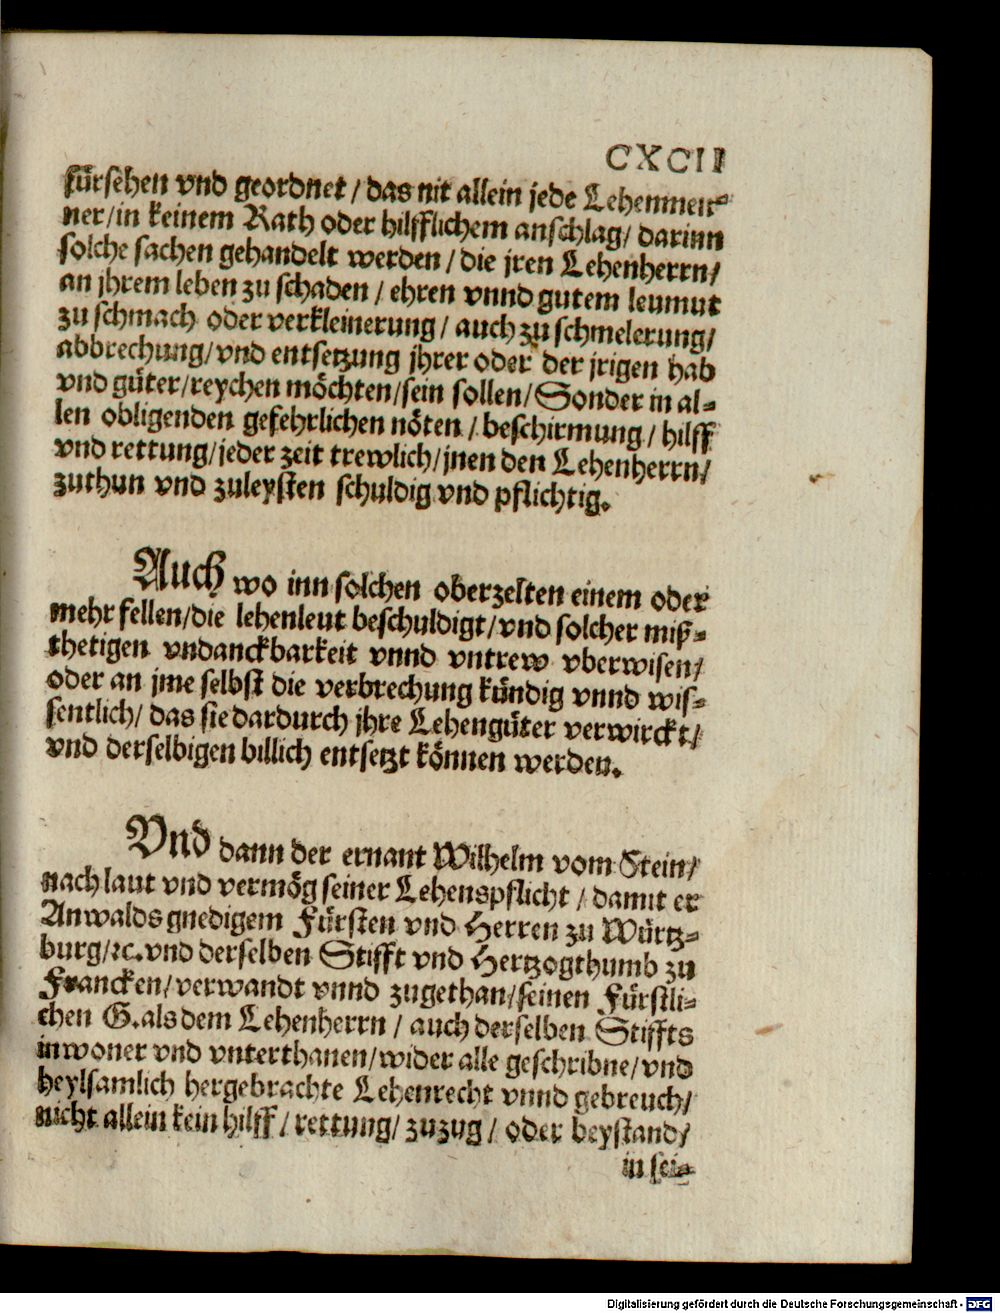 CXCII
fürsehen vnd geordnet / das nit allein jede Lehenmen⸗
ner/in keinem Rath oder hilfflichem anschlag/ darinn
solche sachen gehandelt werden / die jren Lehenherrn/
an jhrem leben zu schaden / ehren vnnd gutem leumut
zu schmach oder verkleinerung / auch zu schmelerung/
abbrechung/vnd entsetzung jhrer oder der jrigen hab
vnd güter/reychen möchten/sein sollen/Sonder in al⸗
len obligenden gefehrlichen nöten / beschirmung / hilff
vnd rettung/jeder zeit trewlich/jnen den Lehenherrn/
zuthun vnd zuleysten schuldig vnd pflichtig.
Auch wo inn solchen oberzelten einem oder
mehr fellen/die lehenleut beschuldigt/vnd solcher miß⸗
thetigen vndanckbarkeit vnnd vntrew vberwisen/
oder an jme selbst die verbrechung kündig vnnd wis⸗
sentlich/ das sie dardurch jhre Lehengüter verwirckt/
vnd derselbigen billich entsetzt können werden.
Vnd dann der ernant Wilhelm vom Stein/
nach laut vnd vermög seiner Lehenspflicht / damit er
Anwalds gnedigem Fürsten vnd Herren zu Würtz⸗
burg/ꝛc.vnd derselben Stifft vnd Hertzogthumb zu
Francken/verwandt vnnd zugethan/seinen Fürstli⸗
chen G.als dem Lehenherrn / auch derselben Stiffts
inwoner vnd vnterthanen/wider alle geschribne/vnd
heylsamlich hergebrachte Lehenrecht vnnd gebreuch/
nicht allein kein hilff / rettung/ zuzug / oder beystand/
in sei⸗
Digitalisierung gefördert durch die Deutsche Forschungsgemeinschaft - DFG